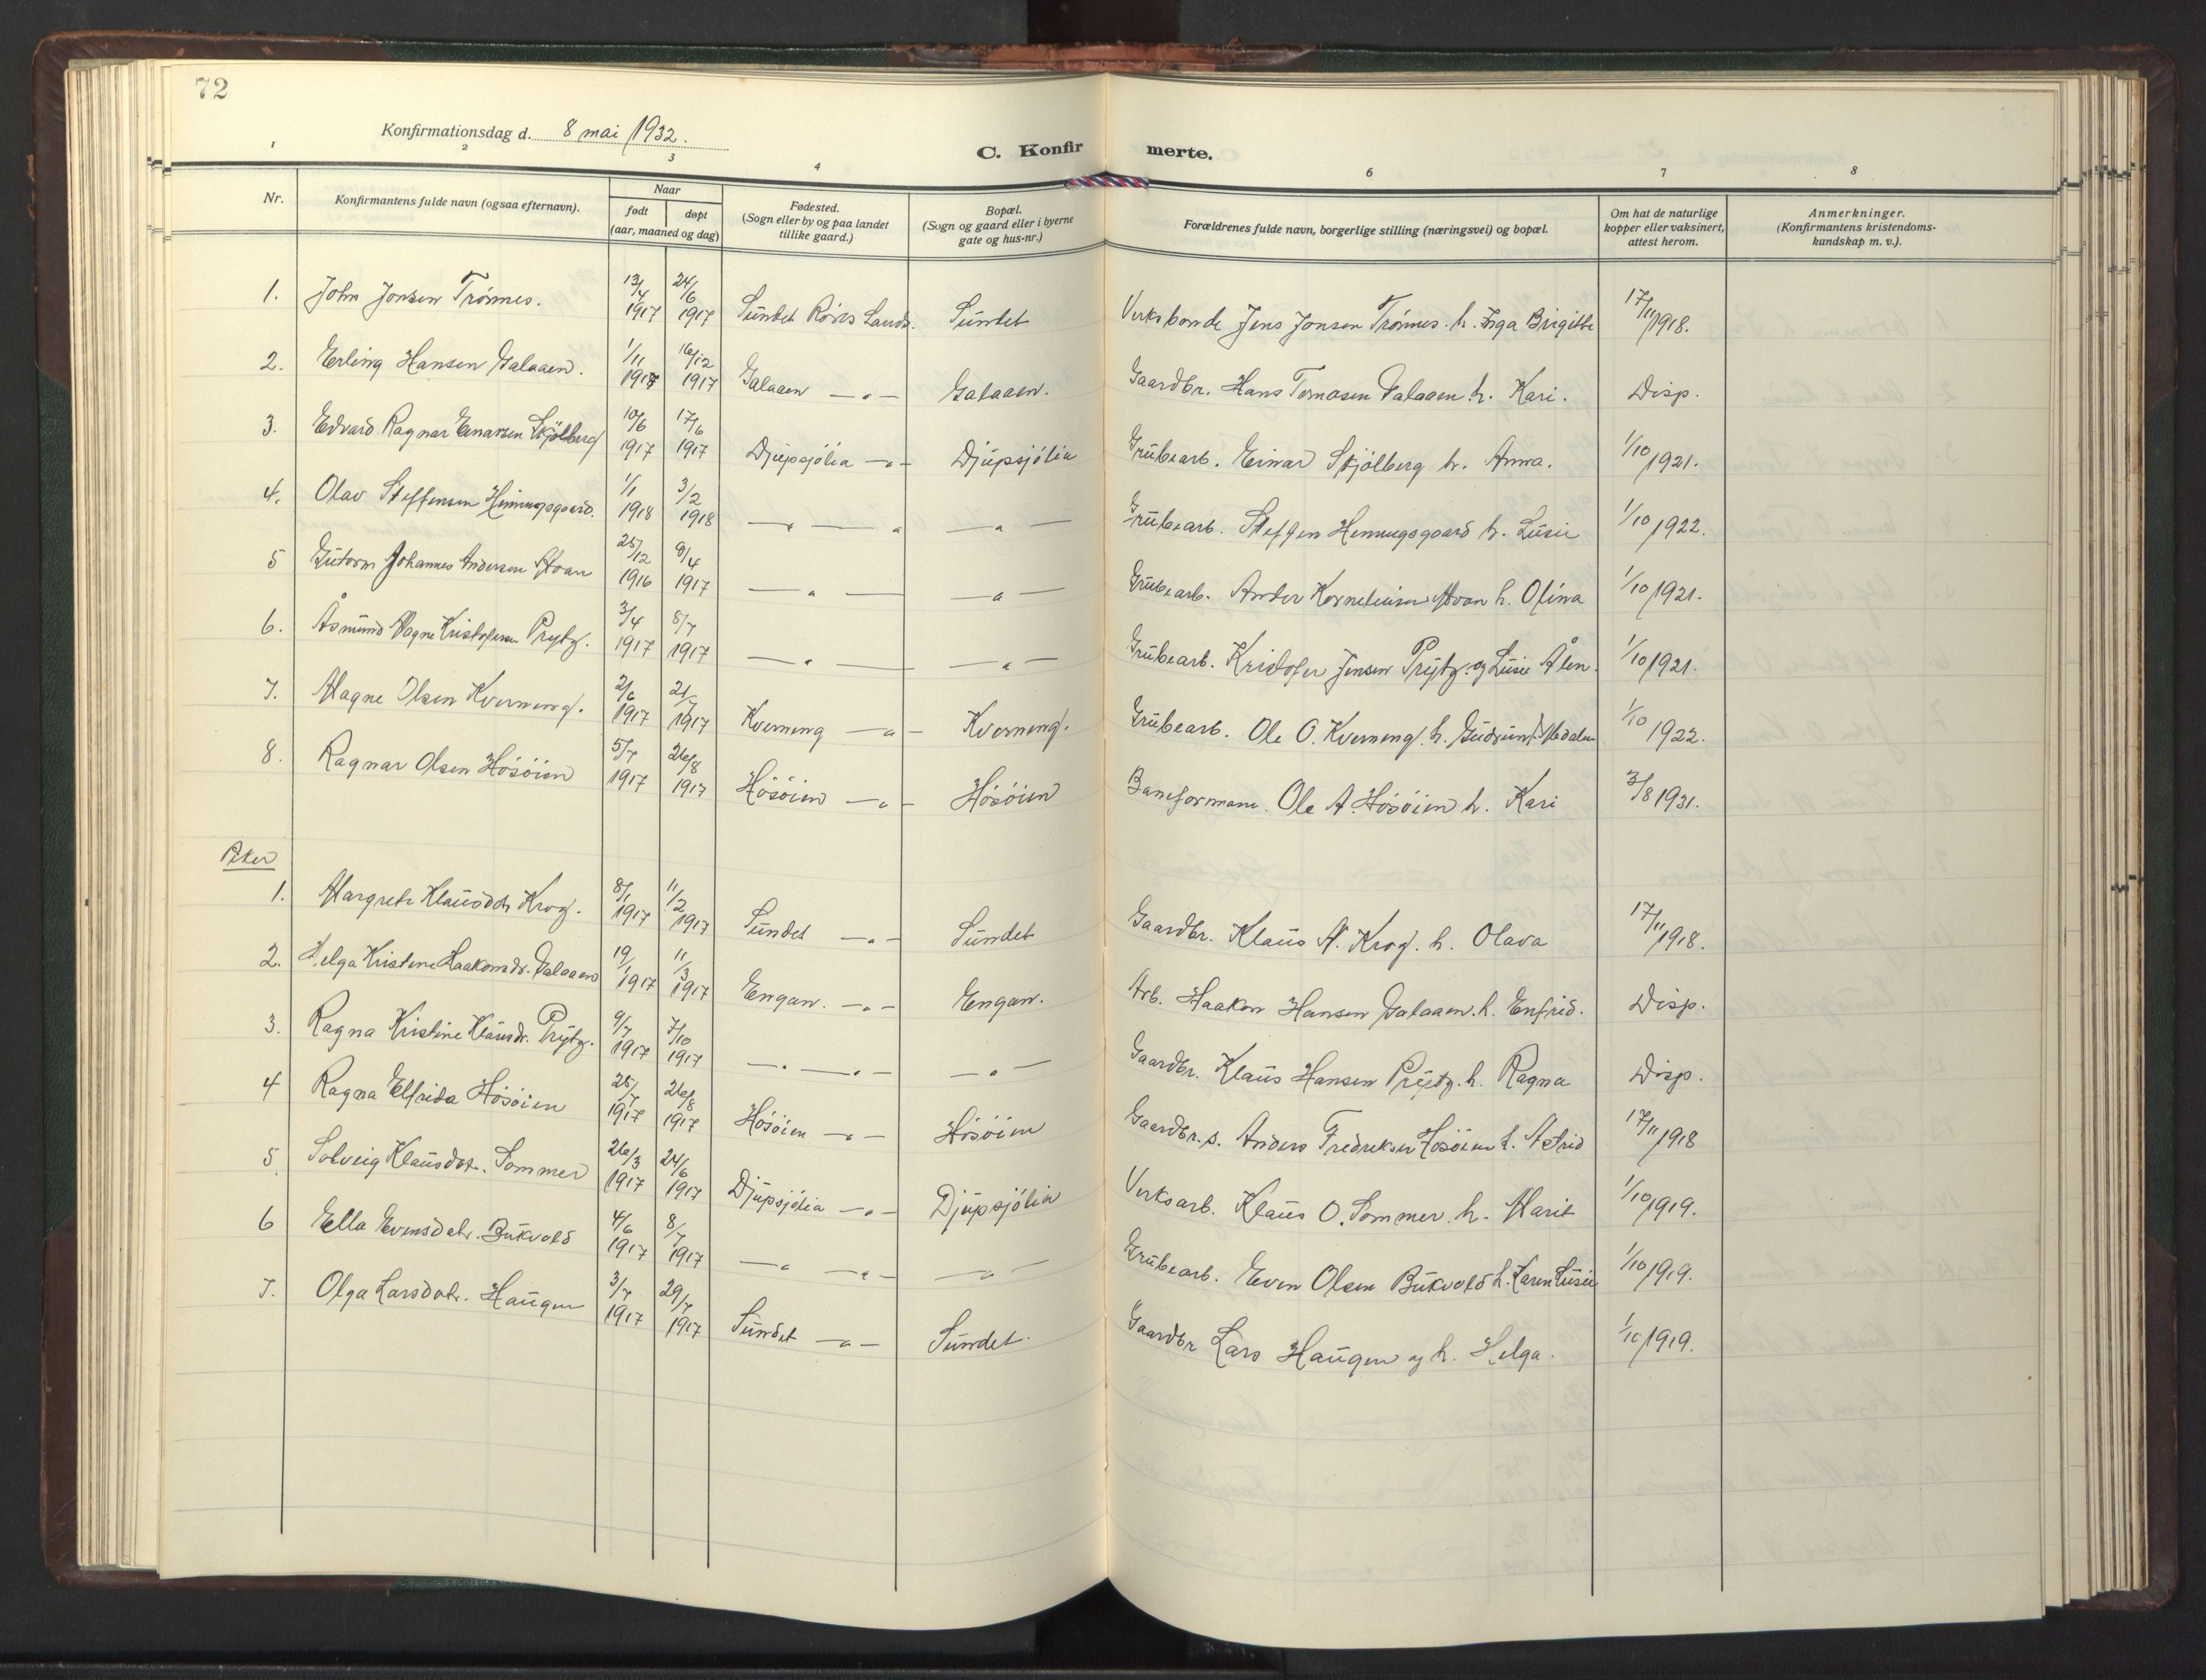 72
Konfirmationsdag d. 8 mai 1932.
C. Konfirmerte.
1 2 3 4 6 7 8
Nr.
Konfirmantens fulde navn (ogsaa efternavn).
Naar
født døpt
(aar, maaned og dag)
Fødested.
(Sogn eller by og paa landet
tillike gaard.)
Bopæl.
(Sogn og gaard eller i byerne
gate og hus-nr.)
Forældrenes fulde navn, borgerlige stilling (næringsvei) og bopæl.
Om hat de naturlige
kopper eller vaksinert,
attest herom.
Anmerkninger.
(Konfirmantens kristendoms-
kundskap m. v.).
1. John Jonsen Trönnes. 13/4 1917 24/6 1917 Sundet Röros Lands. Sundet Verksbonde Jens Jonsen Trönnes. h. Inga Brigitte 17/11 1918.
2. Erling Hansen Galaaen. 1/11 1917 16/12 1917 Galaaen —"— Galaaen. Gaardbr. Hans Tomasen Galaaen h. Kari. Disp.
3. Edvard Ragnar Einarsen Skjölberg 10/6 1917 17/6 1917 Djupsjölia —"— Djupsjölia Grubearb. Einar Skjölberg h. Anna. 1/10 1921.
4. Olav Steffensen Henningsgaard. 1/1 1918 3/2 1918 —"— " —"— Grubearb. Steffen Henningsgaard h. Lusie 1/10 1922.
5 Gutorm Johannes Andersen Moan 25/12 1916 9/4 1917 —"— —"— Grubearb. Ander Korneliusen Moan h. Olina 1/10 1921.
6. Åsmund Magne Kristofersen Prytz. 3/4 1917 5/7 1917 —"— —"— Grubearb. Kristofer Jensen Prytz. og Lusie Ålen. 1/10 1921.
7. Magne Olsen Kverneng. 2/6 1917 21/7 1917 Kverneng —"— Kverneng. Grubearb. Ole O. Kverneng. h. Gudrun f. Medalen 1/10 1922.
8. Ragnar Olsen Hösöien 5/7 1917 26/8 1917 Hösöien —"— Hösöien Baneformann. Ole A. Hösöien h. Kari 3/8 1931.
Piker
1. Margrete Klausdtr Krog. 8/1 1917 11/2 1917 Sundet —"— Sundet Gaardbr. Klaus A. Krog. h. Olava 17/11 1918.
2. Helga Kristine Haakonsdr. Galaaen 19/1 1917 11/3 1917 Engan. —"— Engan. Arb. Haakon Hansen Galaaen. h. Enfrid. Disp.
3. Ragna Kristine Klausdr. Prytz. 9/7 1917 7/10 1917 —"— —"— —"— Gaardbr. Klaus Hansen Prytz. h. Ragna Disp.
4 Ragna Elfrida Hösöien 25/7 1917 26/8 1917 Hösöien —"— Hösöien Gaardbr. s. Anders Fredriksen Hösöien h. Astrid 17/11 1918
5. Solveig Klausdtr. Sommer 26/3 1917 24/6 1917 Djupsjölia —"— Djupsjölia Verksarb. Klaus O. Sommer. h. Marit 1/10 1919.
6 Ella Evensdatr. Bukvold 4/6 1917 8/7 1917 —"— —"— —"— Grubearb. Even Olsen Bukvold h. Karen Lusie 1/10 1919.
7. Olga Larsdatr. Haugen 3/7 1917 29/7 1917 Sundet —"— Sundet. Gaardbr Lars Haugen og h. Helga. 1/10 1919.